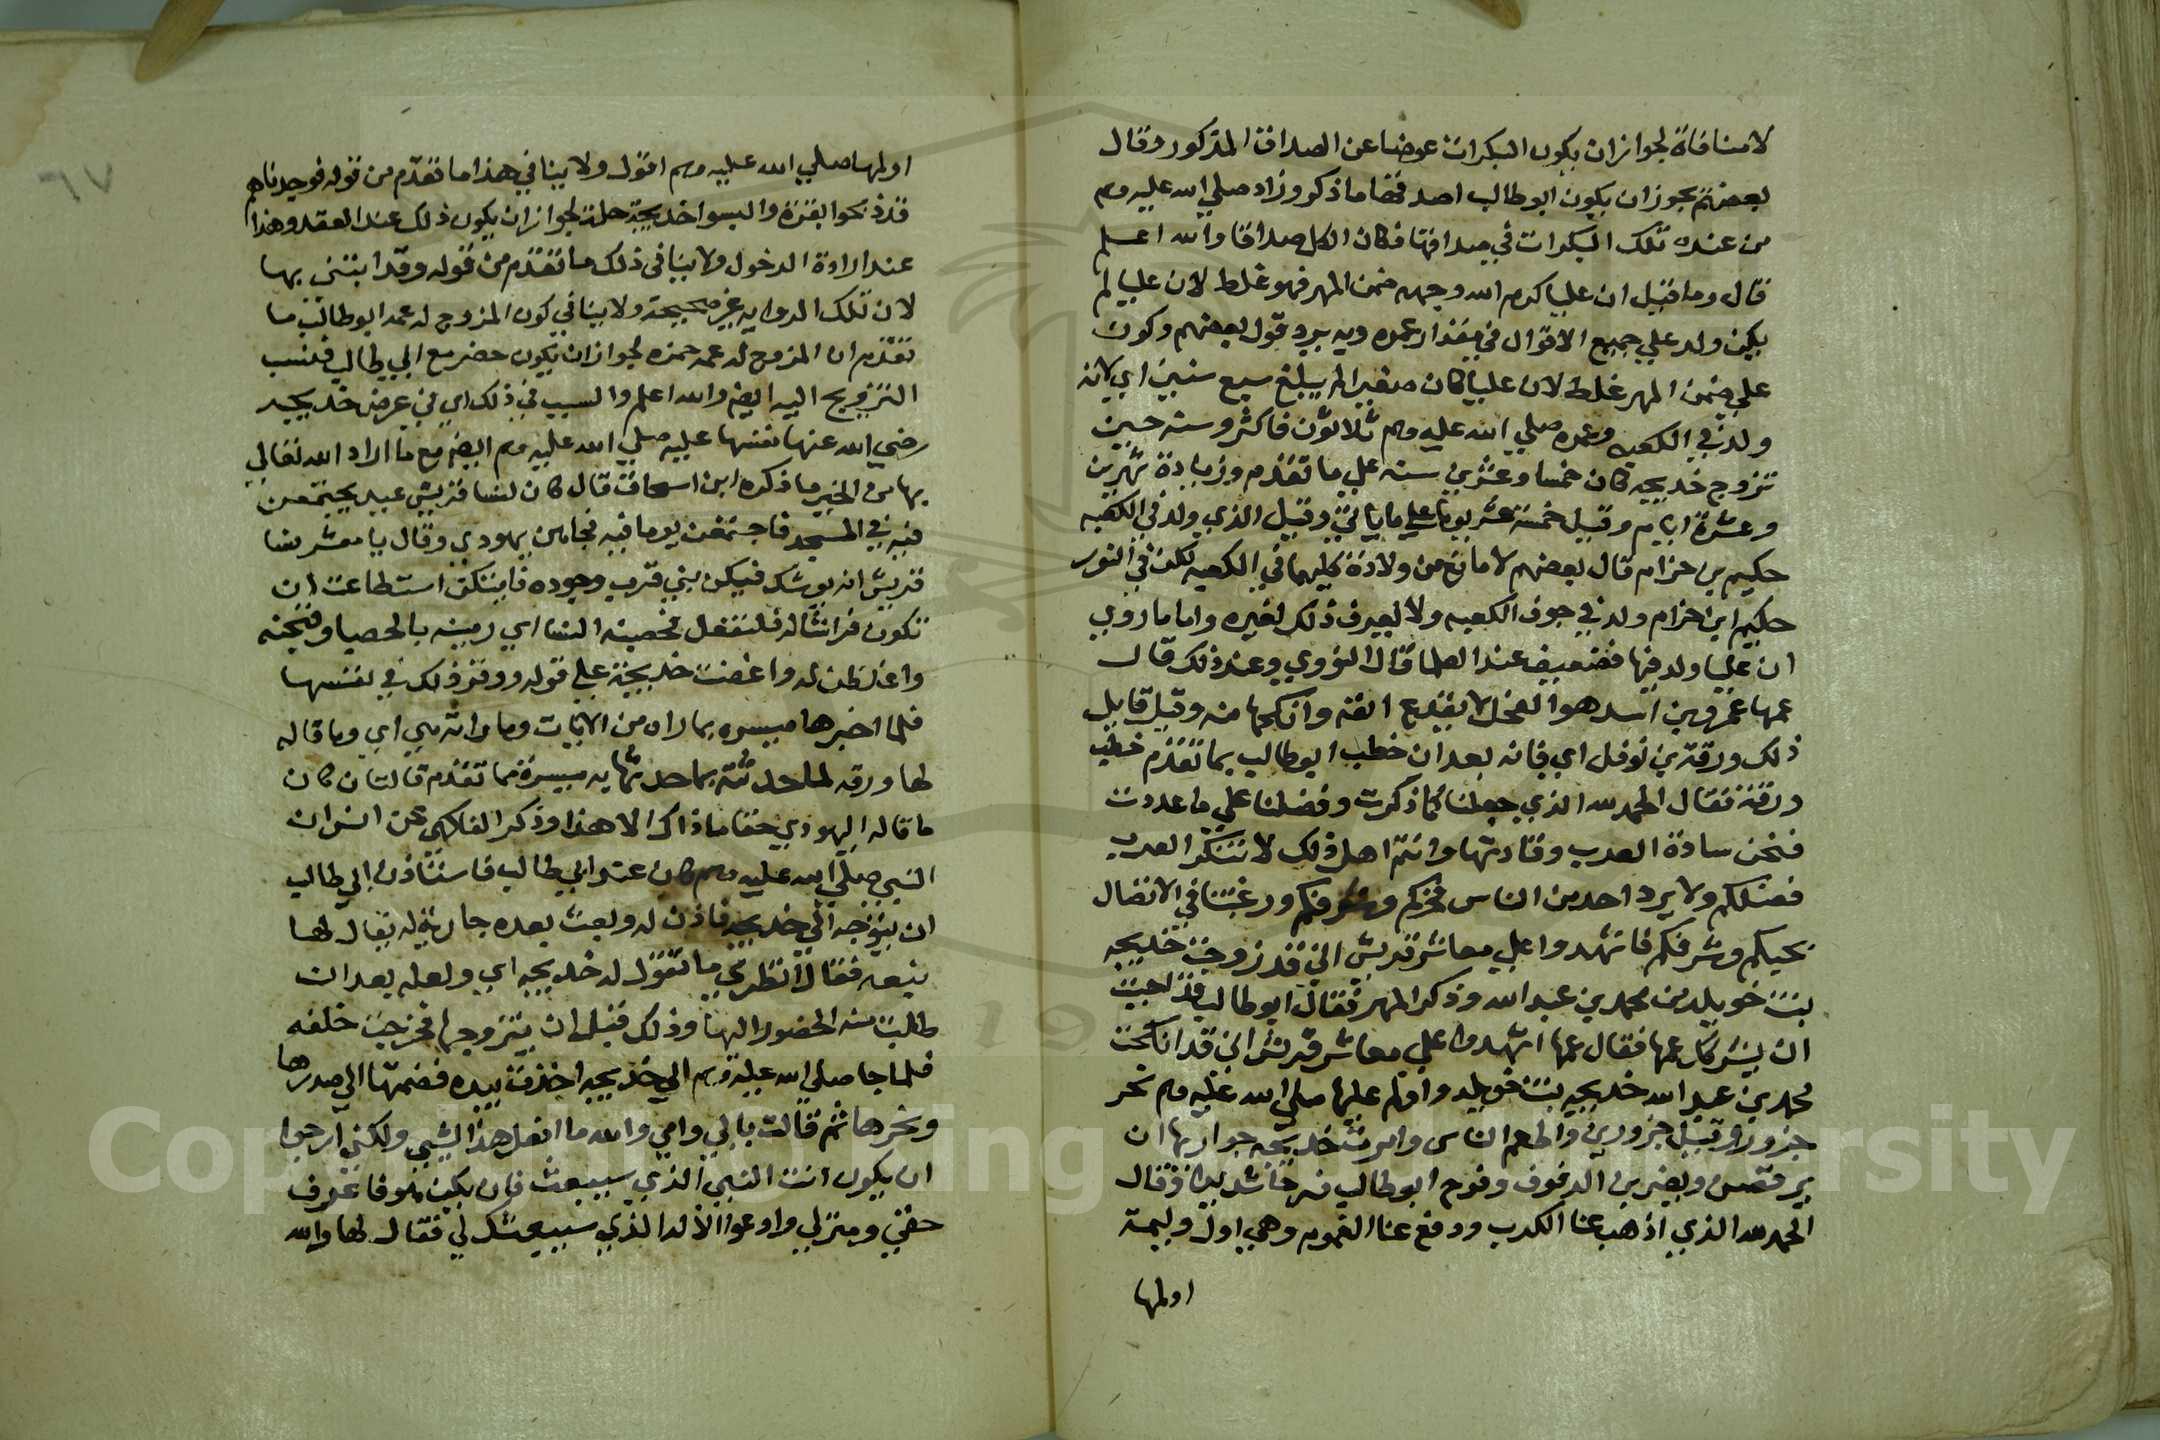 لا منافاة لجواز ان يكون البكرات عوضا عن الصداق المذكور وقال
بعضهم يجوز ان يكون ابو طالب اصدقها ما ذكر وزاد صلي الله عليه وسم
من عنده تلك البكرات في صداقها فكان الكل صداقا والله اعلم
قال وما قيل ان عليا كرم الله وجهه ضمن المهر فهو غلط لان عليا لم
يكن ولد علي جميع الاقوال في مقدار عمره وبه يرد قول بعضهم وكون
علي ضمن المهر غلط لان عليا كان صغيرا لم يبلغ سبع سنين اي لانه
ولد في الكعبه وعمره صلي الله عليه وسم ثلاثون فاكثر وسنه حين
تزوج خديجه كان خمسا وعشرين سنه علي ما تقدم وزيادة شهرين
وعشرة ايام وقيل خمسة عشر يوما علي ما ياتي وقيل الذي ولد في الكعبه
حكيم بن حزام قال بعضهم لا مانع من ولادة كليهما في الكعبه لكن في النور
حكيم ابن حزام ولد في جوف الكعبه ولا يعرف ذلك لغيره واما ما روي
ان عليا ولد فيها فضعيف عند العلما قال النووي وعند ذلك قال
عمها عمرو بن اسد هو الفحل لا يقدع انفه وانكحها منه وقيل قايل
ذلك ورقة بن نوفل اي فانه بعد ان خطب ابو طالب بما تقدم خطب
ورقة فقال الحمد لله الذي جعلنا كما ذكرت وفضلنا علي ما عددت
فنحن سادة العرب وقادتها وانتم اهل ذلك لا تنكر العرب
فضلكم ولا يرد احد من الناس فخركم وشرفكم ورغبتنا في الاتصال
بحبلكم وشرفكم فاشهدوا علي معاشر قريش اني قد زوجت خديجه
بنت خويلد من محمد بن عبد الله وذكر المهر فقال ابو طالب قد احببت
ان يشركك عمها فقال عمها اشهدوا علي معاشر قريش اني قد انكحت
محمد بن عبد الله خديجه بنت خويلد واولم عليها صلي الله عليه وسم نحر
جزورا وقيل جزورين واطعم الناس وامرت خديجه جواريها ان
يرقصن ويضربن الدفوف وفرح ابو طالب فرحا شديدا وقال
الحمد لله الذي اذهب عنا الكرب ودفع عنا الغموم وهي اول وليمة
اولمها
اولمها صلي الله عليه وسم اقول ولا ينافي هذا ما تقدم من قوله فوجدناهم
قد ذبحوا بقرة والبسوا خديجة حلة لجواز ان يكون ذلك عند العقد وهذا
عند ارادة الدخول ولا ينافي ذلك ما تقدم من قوله وقد ابتني بها
لان تلك الروايه غير صحيحة ولا ينافي كون المزوج له عمه ابو طالب ما
تقدم ان المزوج له عمه حمزه لجواز ان يكون حضر مع ابي طالب فنسب
التزويج اليه ايضا والله اعلم والسبب في ذلك اي في عرض خديجه
رضي الله عنها نفسها عليه صلي الله عليه وسم ايضا مع ما اراد الله تعالي
بها من الخير ما ذكره ابن اسحاق قال كان لنسا قريش عيد يجتمعن
فيه في المسجد فاجتمعن يوما فيه فجاهن يهودي وقال يا معشر نسا
قريش انه يوشك فيكن نبي قرب وجوده فايتكن استطاعت ان
تكون فراشا له فلتفعل فحصبنه النسا اي رمينه بالحصبا وقبحنه
واغلظن له واغضت خديجة علي قوله ووقر ذلك في نفسها
فلما اخبرها ميسره بما راه من الايات وما راته هي اي وما قاله
لها ورقه لما حدثته بما حدثها به ميسرة مما تقدم قالت ان كان
ما قاله اليهودي حقا ما ذاك الا هذا وذكر الفاكهي عن انس ان
النبي صلي الله عليه وسم كان عند ابي طالب فاستاذن ابي طالب
ان يتوجه الي خديجه فاذن له وبعث بعده جارية له يقال لها
نبعه فقال انظري ما تقول له خديجه اي ولعله بعد ان
طلبت منه الحضور اليها وذلك قبل ان يتزوجها فخرجت خلفه
فلما جا صلي الله عليه وسم الي خديجه اخذت بيده فضمتها الي صدرها
ونحرها ثم قالت بابي وامي والله ما افعل هذا لشي ولكني ارجوا
ان يكون انت النبي الذي سيبعث فان يكن هو فاعرف
حقي ومنزلي وادعوا الاله الذي سيبعثك لي فقال لها والله
Copyright © King Saud University